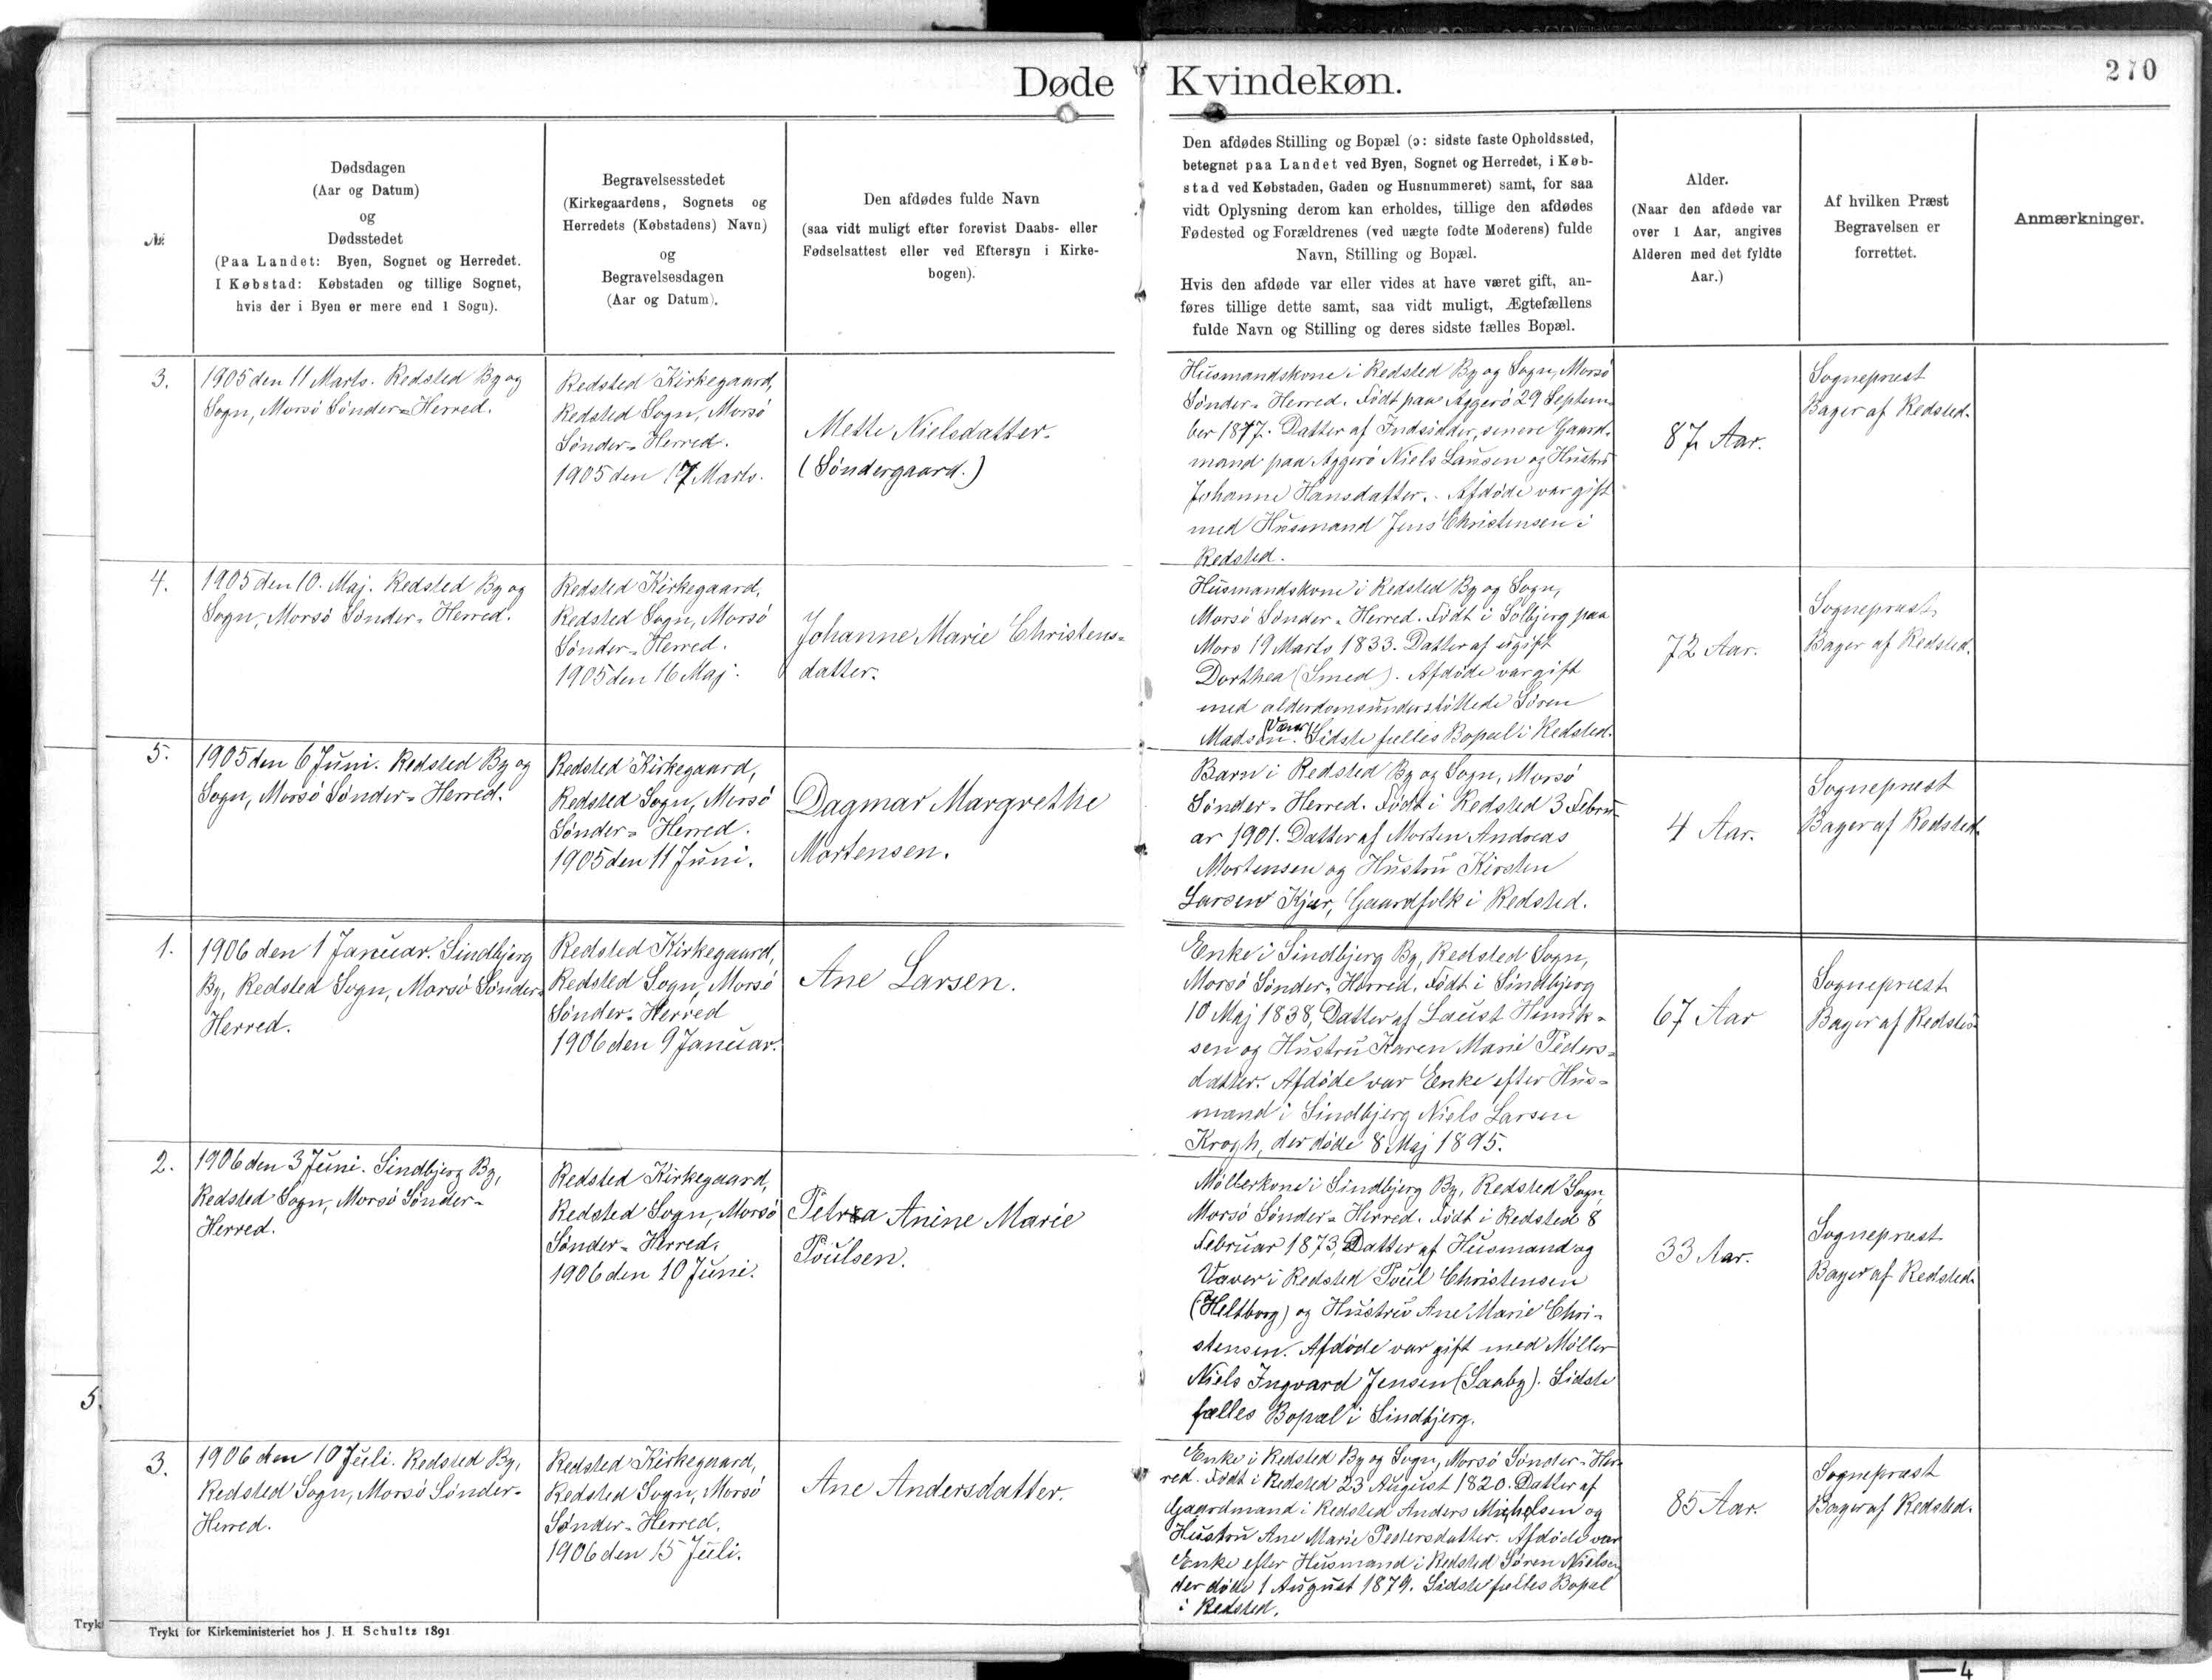 Døde Kvindekøn.
270
№
Dødsdagen
(Aar og Datum)
og
Dødsstedet
(Paa Landet: Byen, Sognet og Herredet.
I Købstad: Købstaden og tillige Sognet,
hvis der i Byen er mere end 1 Sogn).
Begravelsesstedet
(Kirkegaardens, Sognets og
Herredets (Købstadens) Navn)
og
Begravelsesdagen
(Aar og Datum).
Den afdødes fulde Navn
(saa vidt muligt efter forevist Daabs- eller
Fødselsattest eller ved Eftersyn i Kirke-
bogen).
Den afdødes Stilling og Bopæl (ɔ: sidste faste Opholdssted,
betegnet paa Landet ved Byen, Sognet og Herredet, i Køb-
stad ved Købstaden, Gaden og Husnummeret) samt, for saa
vidt Oplysning derom kan erholdes, tillige den afdødes
Fødested og Forældrenes (ved uægte fødte Moderens) fulde
Navn, Stilling og Bopæl.
Hvis den afdøde var eller vides at have været gift, an-
føres tillige dette samt, saa vidt muligt, Ægtefællens
fulde Navn og Stilling og deres sidste fælles Bopæl.
Alder.
(Naar den afdøde var
over 1 Aar, angives
Alderen med det fyldte
Aar.)
Af hvilken Præst
Begravelsen er
forrettet.
Anmærkninger.
3.
1905 den 11 Marts. Redsted By og
Sogn, Morsö Sönder=Herred.
Redsted Kirkegaard,
Redsted Sogn, Morsö
Sönder=Herred.
1905 den 17 Marts.
Mette Nielsdatter.
(Söndergaard.)
Husmandskone i Redsted By og Sogn, Morsö
Sönder=Herred. Födt paa Aggerö 29 Septem=
ber 1817. Datter af Indsidder, senere Gaard=
mand paa Aggerö Niels Lausen og Hustru
Johanne Hansdatter. Afdöde var gift
med Husmand Jens Christensen i
Redsted.
87 Aar.
Sognepræst
Bager af Redsted.
4.
1905 den 10. Maj. Redsted By og
Sogn, Morsö Sönder=Herred.
Redsted Kirkegaard,
Redsted Sogn, Morsö
Sönder=Herred.
1905 den 16 Maj.
Johanne Marie Christens=
datter.
Husmandskone i Redsted By og Sogn,
Morsö Sönder=Herred. Födt i Solbjerg paa
Mors 19 Marts 1833. Datter af ugift
Dorthea (Smed). Afdöde var gift
med alderdomsunderstöttede Sören
Madsen. Sidste fælles Bopæl i Redsted.
72 Aar.
Sognepræst
Bager af Redsted.
5.
1905 den 6 Juni. Redsted By og
Sogn, Morsö Sönder=Herred.
Redsted Kirkegaard,
Redsted Sogn, Morsö
Sönder=Herred.
1905 den 11 Juni.
Dagmar Margrethe
Mortensen.
Barn i Redsted By og Sogn, Morsö
Sönder=Herred. Födt i Redsted 3 Febru=
ar 1901. Datter af Morten Andreas
Mortensen og Hustru Kirsten
Larsen Kjær, Gaardfolk i Redsted.
4 Aar.
Sognepræst
Bager af Redsted.
1.
1906 den 1 Januar. Sindbjerg
By, Redsted Sogn, Morsö Sönder=
Herred.
Redsted Kirkegaard,
Redsted Sogn, Morsö
Sönder=Herred
1906 den 9 Januar.
Ane Larsen.
Enke i Sindbjerg By, Redsted Sogn,
Morsö Sönder=Herred. Födt i Sindbjerg
10 Maj 1838, Datter af Laust Henrik=
sen og Hustru Karen Marie Peders=
datter. Afdöde var Enke efter Hus=
mand i Sindbjerg Niels Larsen
Krogh, der döde 8 Maj 1895.
67 Aar
Sognepræst
Bager af Redsted
2.
1906 den 3 Juni. Sindbjerg By,
Redsted Sogn, Morsö Sönder=
Herred.
Redsted Kirkegaard,
Redsted Sogn, Morsö
Sönder=Herred.
1906 den 10 Juni.
Petrea Anine Marie
Poulsen.
Möllerkone i Sindbjerg By, Redsted Sogn,
Morsö Sönder=Herred. Födt i Redsted 8
Februar 1873, Datter af Husmand og
Væver i Redsted Poul Christensen
(Heltborg) og Hustru Ane Marie Chri=
stensen. Afdöde var gift med Möller
Niels Ingvard Jensen (Saaby). Sidste
fælles Bopæl i Sindbjerg.
33 Aar.
Sognepræst
Bager af Redsted.
3.
1906 den 10 Juli. Redsted By,
Redsted Sogn, Morsö Sönder=
Herred.
Redsted Kirkegaard,
Redsted Sogn, Morsö
Sönder=Herred.
1906 den 15 Juli.
Ane Andersdatter.
Enke i Redsted By og Sogn, Morsö Sönder=Her
red. Födt i Redsted 23 August 1820. Datter af
Gaardmand i Redsted Anders Michelsen og
Hustru Ane Marie Pedersdatter. Afdöde var
Enke efter Husmand i Redsted Sören Nielsen
der döde 1 August 1879. Sidste fælles Bopæl
i Redsted.
85 Aar.
Sognepræst
Bager af Redsted.
5.
Tryk
Trykt for Kirkeministeriet hos J. H. Schultz 1891
4